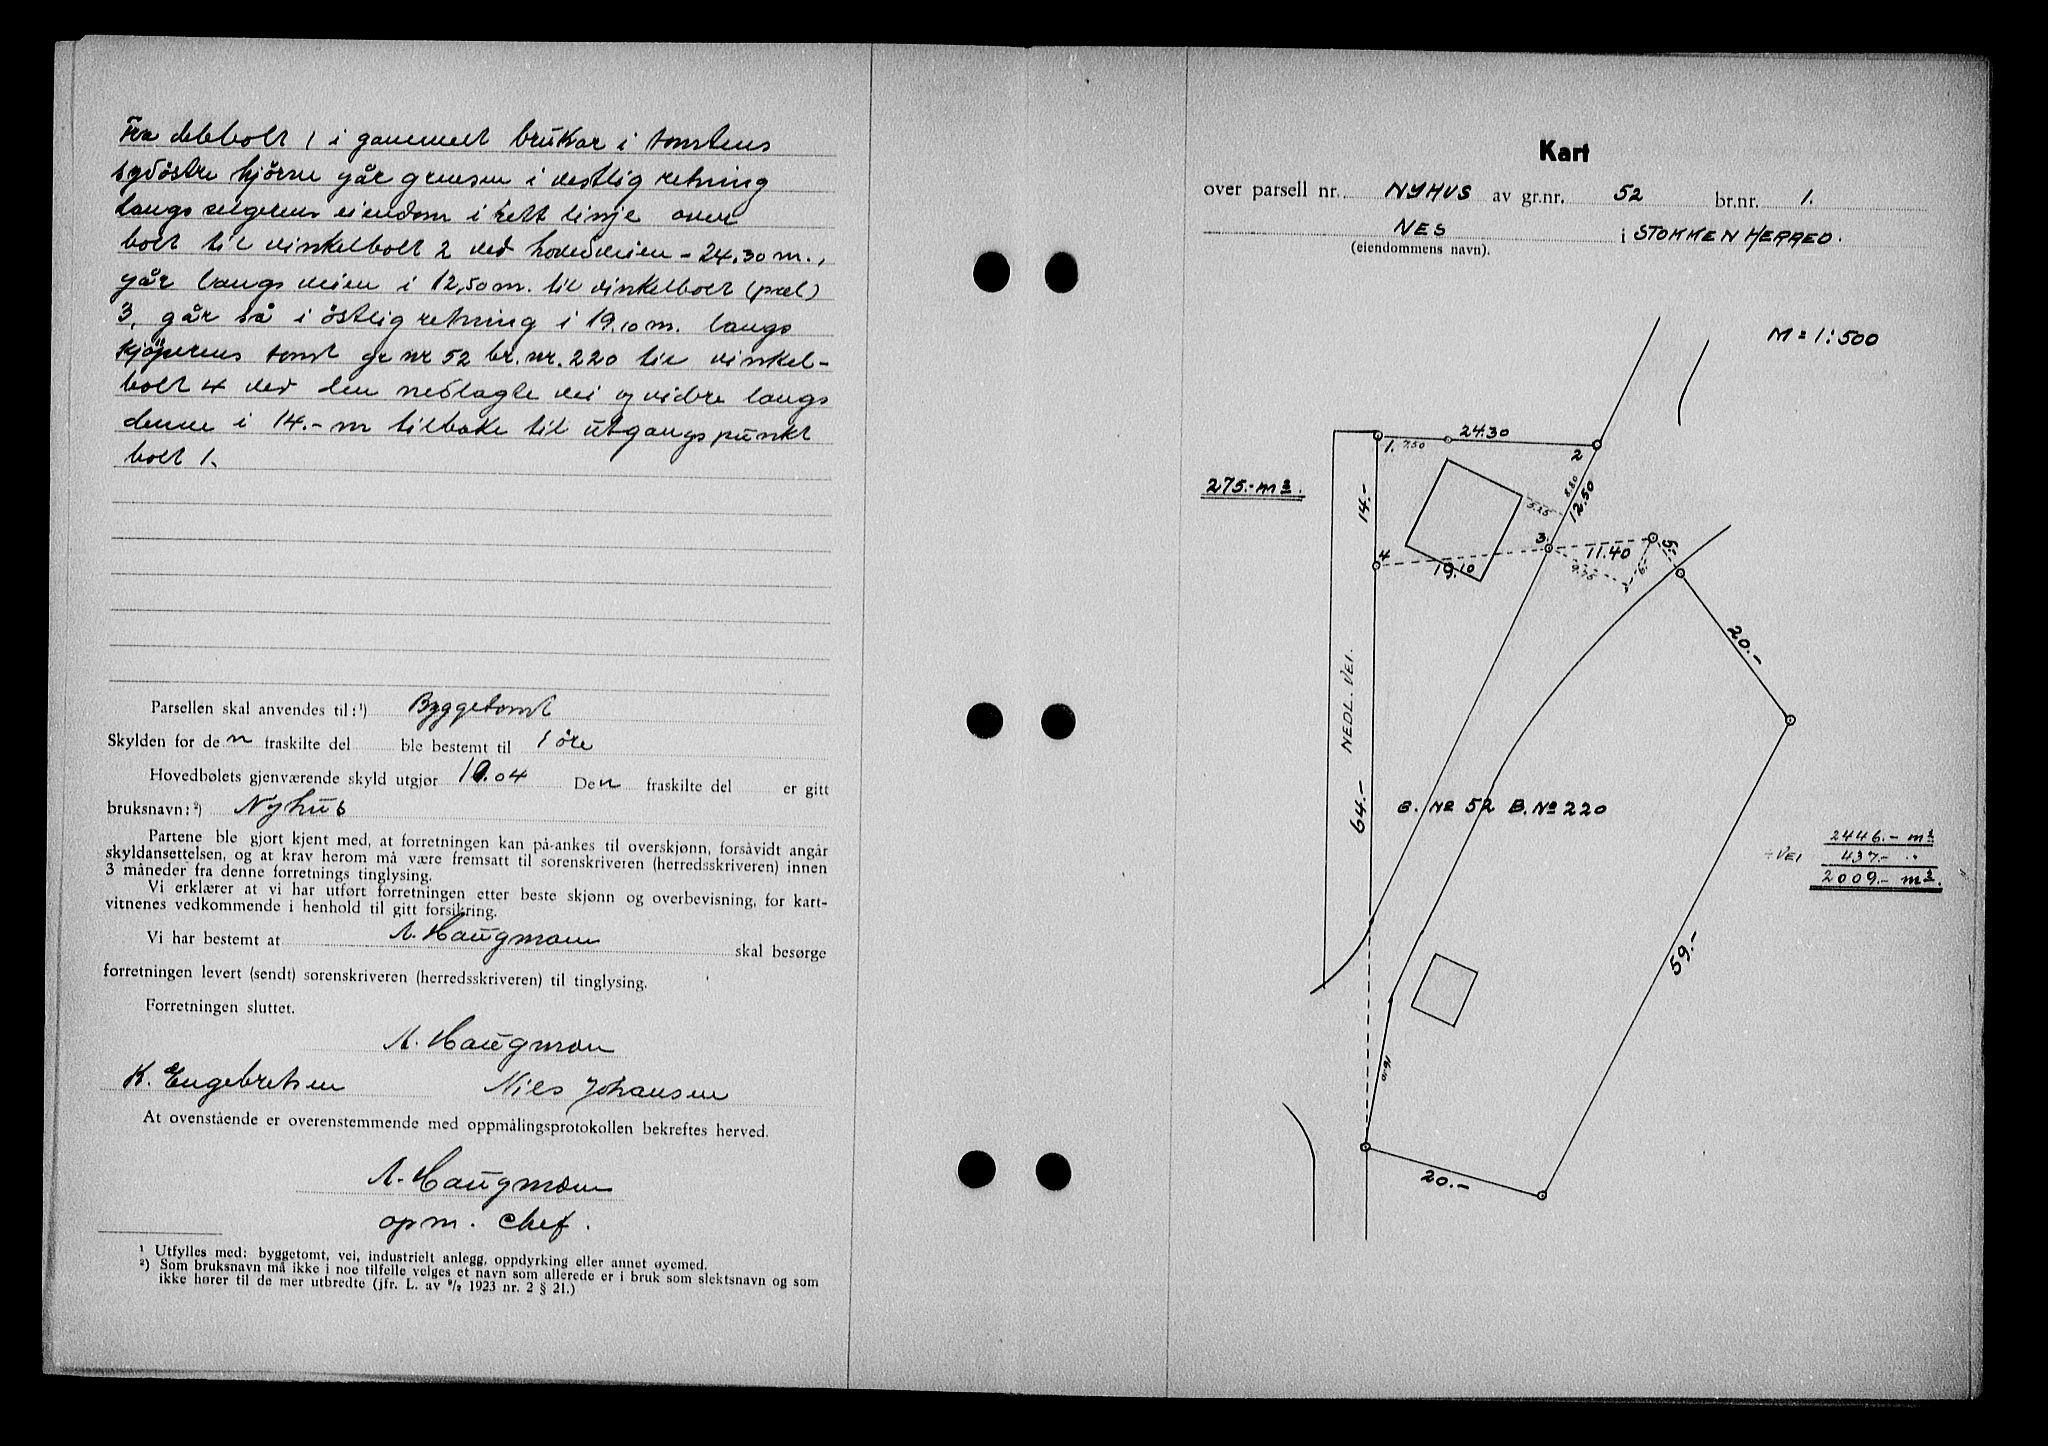 Fra delebolt 1 i gammelt brukar i tomtens
sydöstre hjörne går grensen i vestlig retning
langs selgerens eiendom i rett linje over
bolt til vinkelbolt 2 ved hovedveien - 24.30 m.,
går langs veien i 12,50 m. til vinkelbolt (pæl)
3, går så i östlig retning i 19.10 m. langs
kjöperens tomt gr nr 52 br. nr. 220 til vinkel-
bolt 4 ved den nedlagte vei og vidre langs
denne i 14.- m tilbake til utgangspunkt
bolt 1.
Parsellen skal anvendes til:¹) Byggetomt
Skylden for den fraskilte del ble bestemt til 1 öre
Hovedbølets gjenværende skyld utgjør 10.04 Den fraskilte del er gitt
bruksnavn:²) Nyhus
Partene ble gjort kjent med, at forretningen kan på-ankes til overskjønn, forsåvidt angår
skyldansettelsen, og at krav herom må være fremsatt til sorenskriveren (herredsskriveren) innen
3 måneder fra denne forretnings tinglysing.
Vi erklærer at vi har utført forretningen etter beste skjønn og overbevisning, for kart-
vitnenes vedkommende i henhold til gitt forsikring.
Vi har bestemt at A. Haugmoen skal besørge
forretningen levert (sendt) sorenskriveren (herredsskriveren) til tinglysing.
Forretningen sluttet.
A. Haugmoen
K. Engebretsen Nils Johansen
At ovenstående er overenstemmende med oppmålingsprotokollen bekreftes herved.
A. Haugmoen
opm. chef.
¹ Utfylles med: byggetomt, vei, industrielt anlegg, oppdyrking eller annet øyemed.
²) Som bruksnavn må ikke i noe tilfelle velges et navn som allerede er i bruk som slektsnavn og som
ikke hører til de mer utbredte (jfr. L. av ⁹/₂ 1923 nr. 2 § 21.)
Kart
over parsell nr. NYHUS av gr.nr. 52 br.nr. 1.
NES i STOKKEN HERRED.
(eiendommens navn).
M = 1:500
1. 7.50 24.30 2
275.- m².
14.-
5.25 8.80 12.50
4 19.10 3. 11.40 5.-
9.75 6.-
20.-
NEDL. VEI.
64.-
G. No 52 B. No 220
2446.- m²
÷ VEI 437.- "
2009.- m².
59.-
16.10
20.-